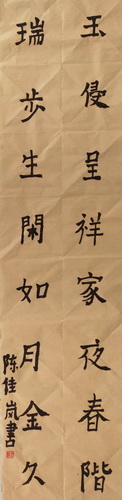 玉侵呈祥家夜春階
瑞步生閑如月金久
陈佳岚書